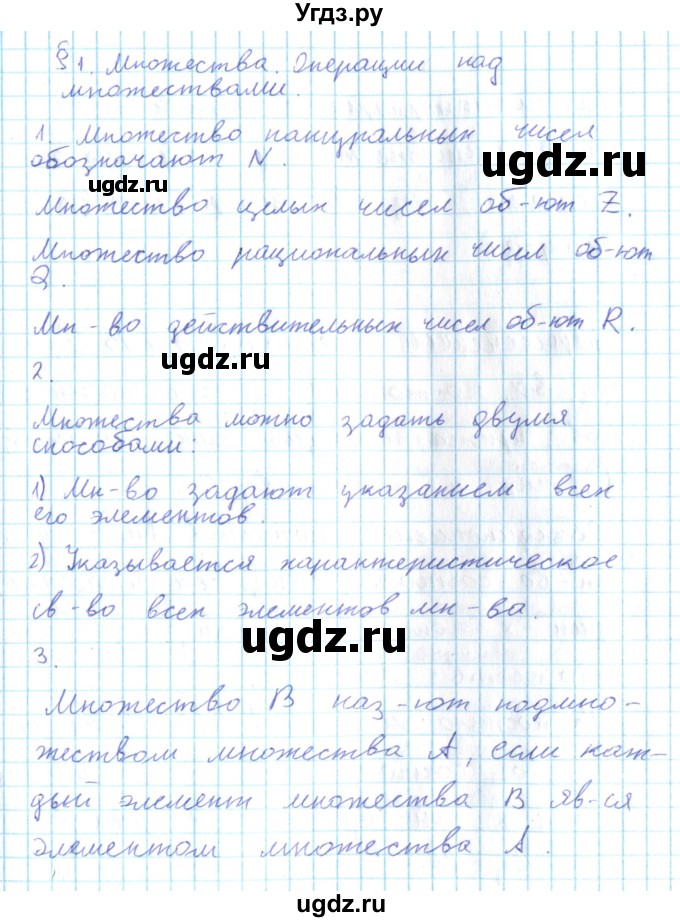 Угдз.ру
§ 1. Множества. Операции над
множествами.
1. Множество натуральных чисел
обозначают N.
ugdz.ru
ugdz.ru
Множество целых чисел об-ют Z.
Множество рациональных чисел об-ют
Q.
ugdz.ru
Мн-во действительных чисел об-ют R.
ugdz.ru
2.
Множества можно задать двумя
способами:
1) Мн-во задают указанием всех
его элементов.
2) Указывается характеристическое
св-во всех элементов мн-ва.
ugdz.ru
3.
Множество B наз-ют подмно-
жеством множества A, если каж-
дый элемент множества B яв-ся
элементом множества A.
ugdz.ru
ugdz.ru